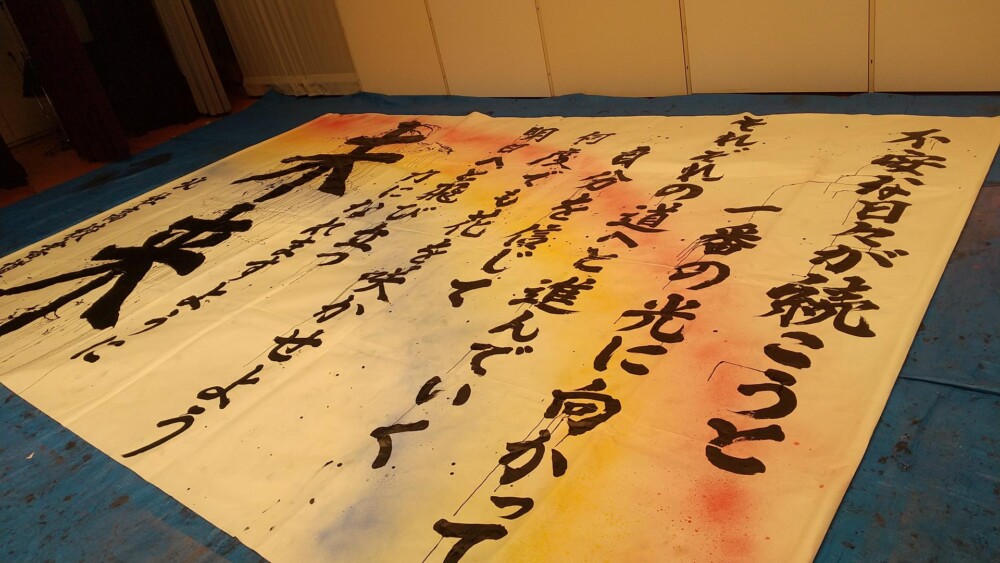 不安な日々が続こうと
一番の光に向かって
それぞれの道へと進んでいく
自分を信じて
何度でも花を咲かせよう
明日へと飛び立つ
力になれますように
未来